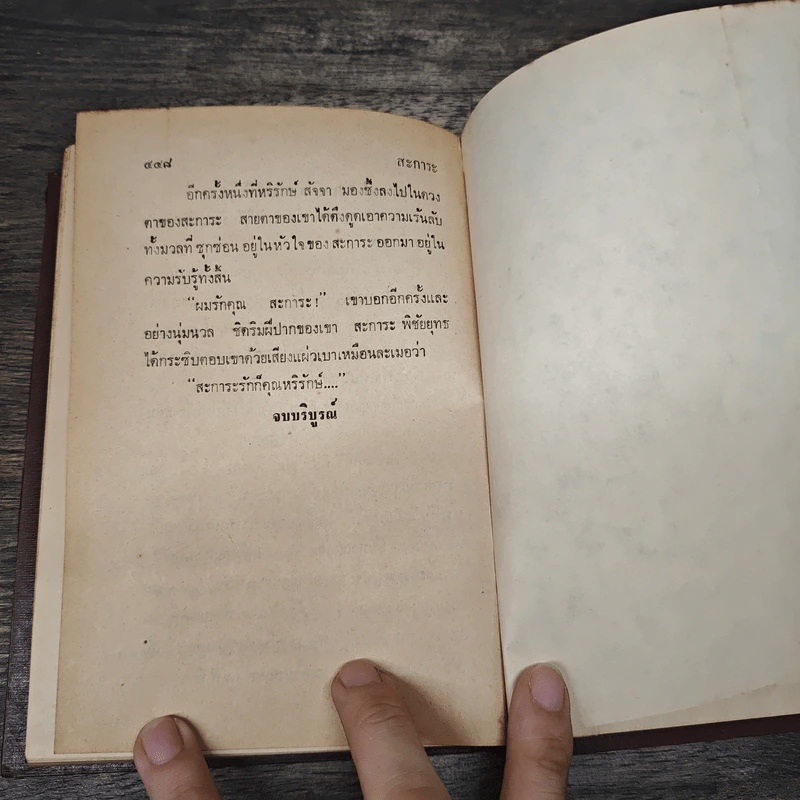 ๔๔๘ สะการะ
อีกครั้งหนึ่งที่หริรักษ์ สัจจา มองซึ้งลงไปในดวง
ตาของสะการะ สายตาของเขาได้ดึงดูดเอาความเร้นลับ
ทั้งมวลที่ ซุกซ่อน อยู่ใน หัวใจ ของ สะการะ ออกมา อยู่ใน
ความรับรู้ทั้งสิ้น
“ผมรักคุณ สะการะ!” เขาบอกอีกครั้งและ
อย่างนุ่มนวล ชิดริมฝีปากของเขา สะการะ พิชัยยุทธ
ได้กระซิบตอบเขาด้วยเสียงแผ่วเบาเหมือนละเมอว่า
“สะการะรักก็คุณหริรักษ์....”
จบบริบูรณ์